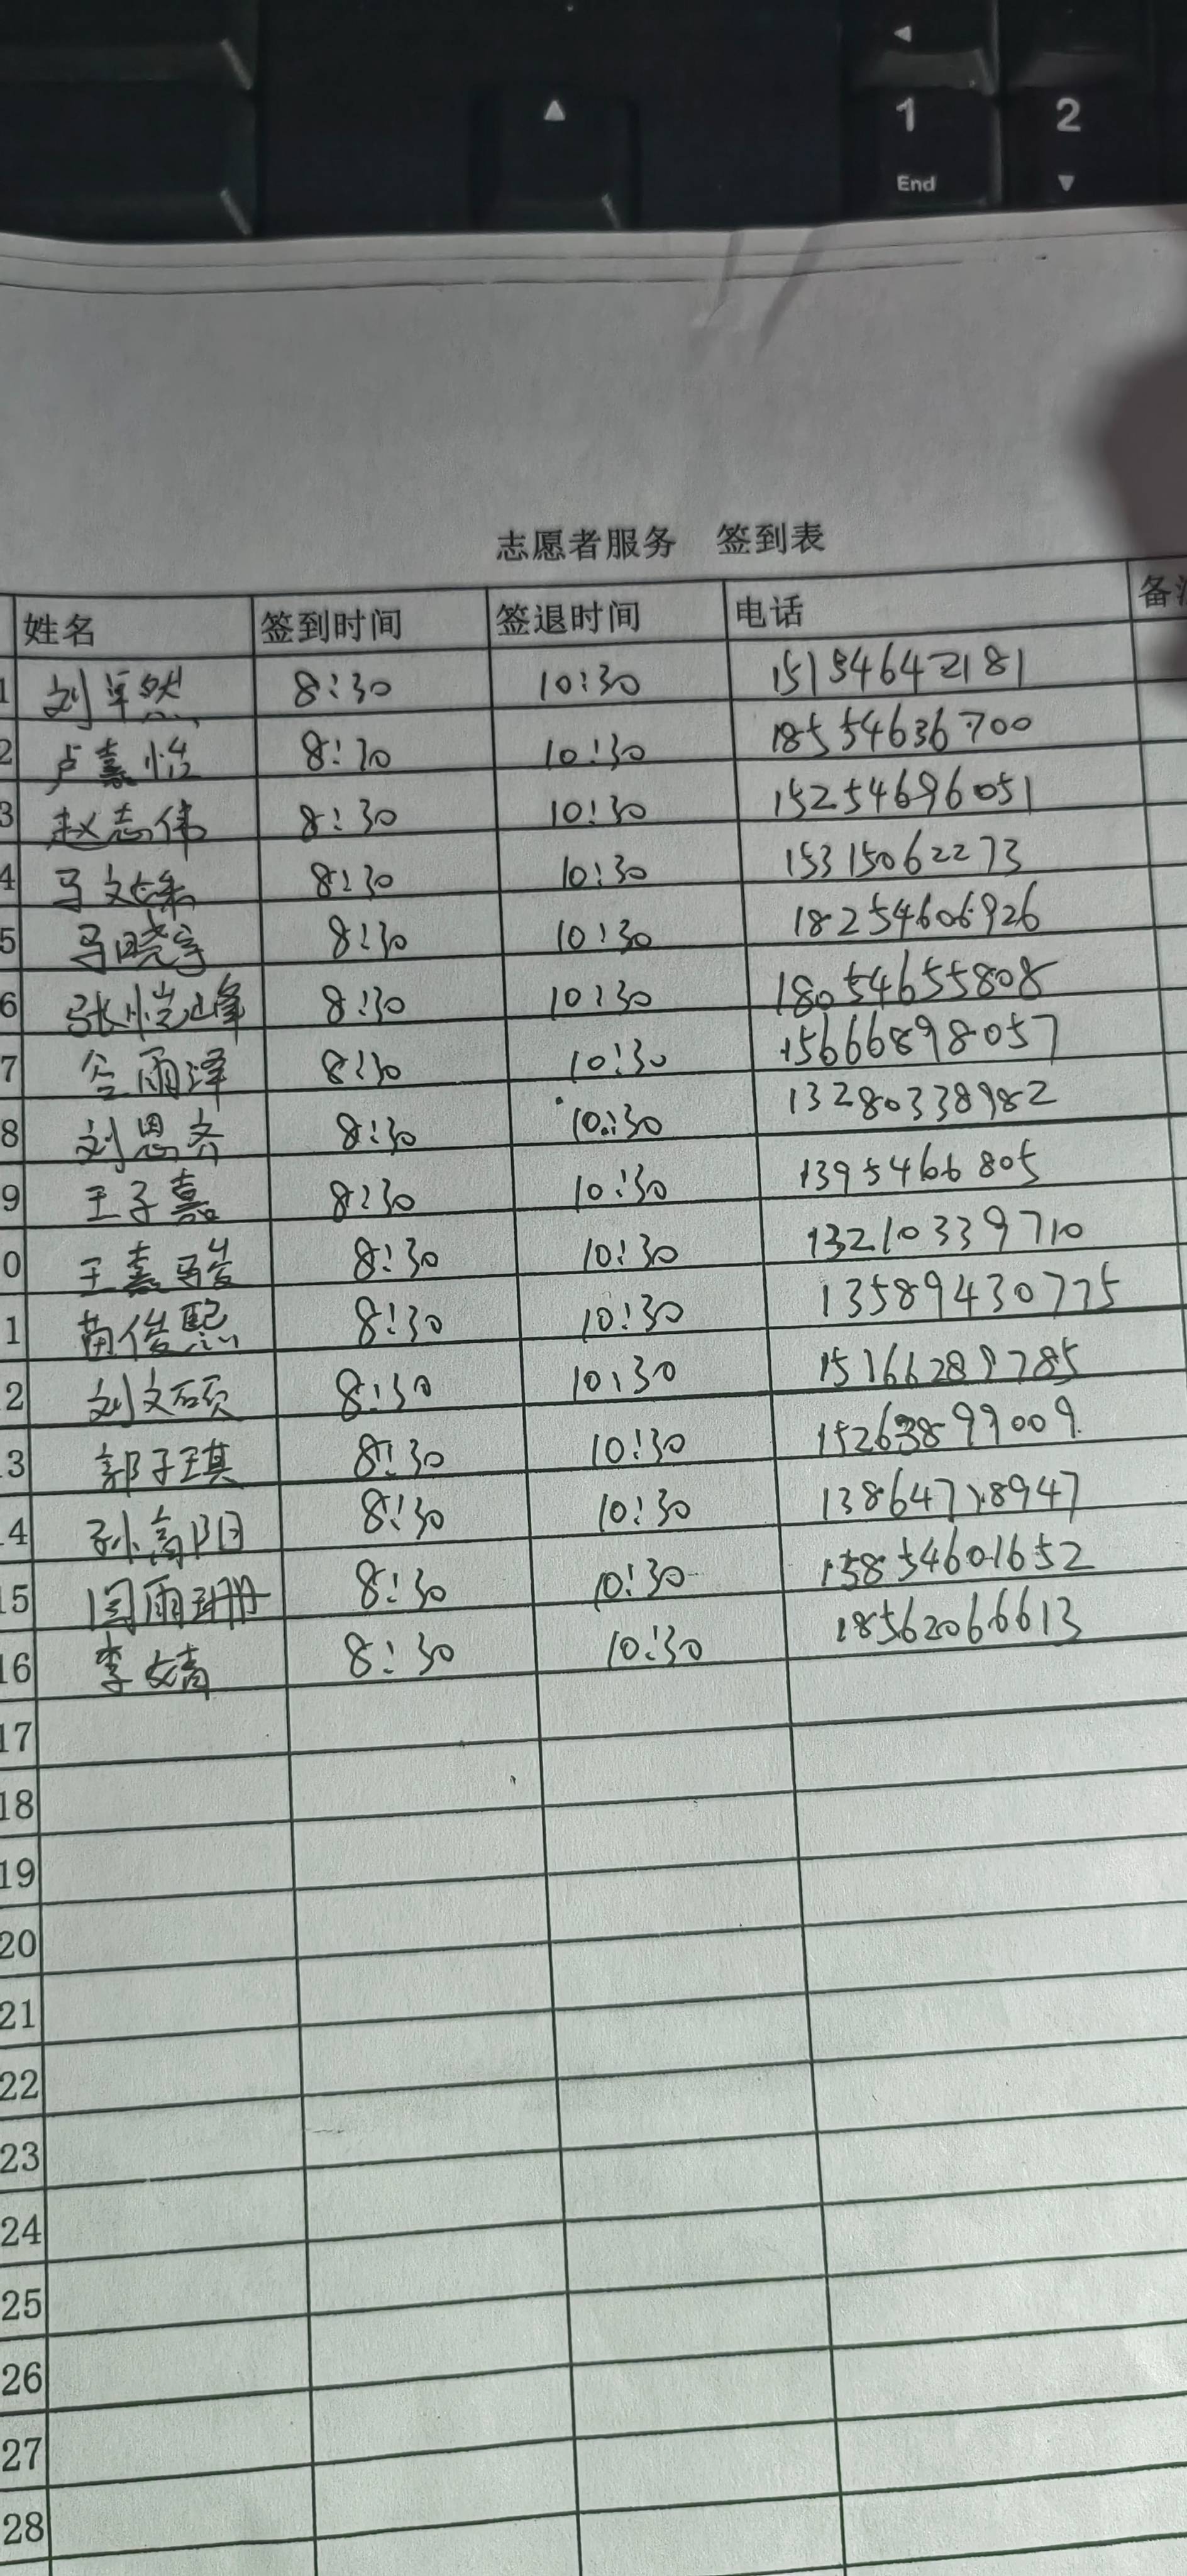 1 2
End
志愿者服务 签到表
姓名 签到时间 签退时间 电话
1 刘卓然 8:30 10:30 15134642181
2 卢嘉怡 8:30 10:30 18554636700
3 赵志伟 8:30 10:30 15254696051
4 马文 8:30 10:30 15315062273
5 马晓宇 8:30 10:30 18254606926
6 张恺峰 8:30 10:30 18054655808
7 雨泽 8:30 10:30 15666898057
8 刘恩齐 8:30 10:30 13280338982
9 王子嘉 8:30 10:30 1395466805
0 王嘉骏 8:30 10:30 13210339710
1 苗俊熙 8:30 10:30 13589430775
2 刘文硕 8:30 10:30 15166289785
3 郭子琪 8:30 10:30 15263899009
4 孙高阳 8:30 10:30
15 闫雨珊 8:30 10:30 15854601652
16 李文靖 8:30 10:30 18562066613
17
18
19
20
21
22
23
24
25
26
27
28